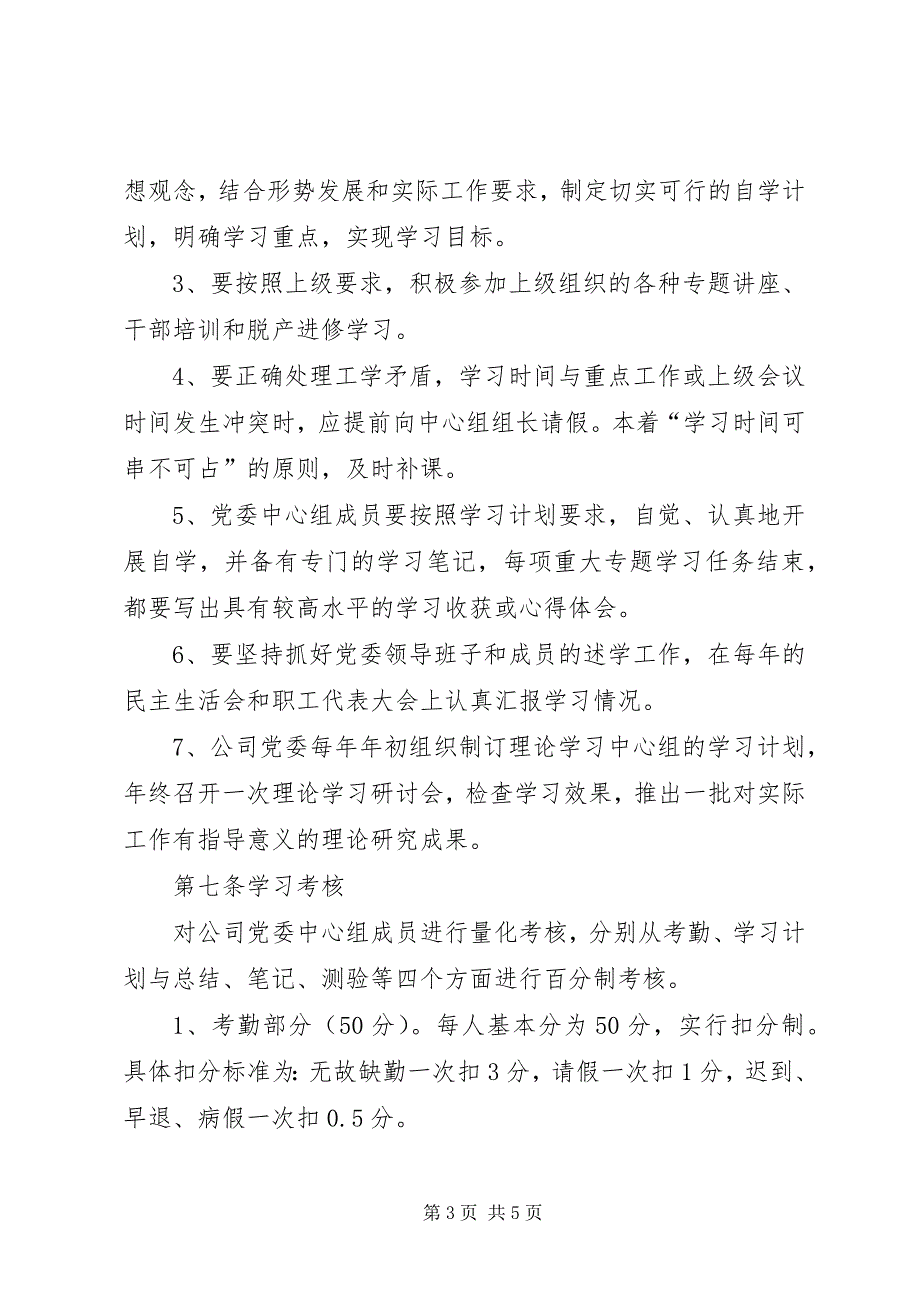 想观念，结合形势发展和实际工作要求，制定切实可行的自学计
划，明确学习重点，实现学习目标。
3、要按照上级要求，积极参加上级组织的各种专题讲座、
干部培训和脱产进修学习。
4、要正确处理工学矛盾，学习时间与重点工作或上级会议
时间发生冲突时，应提前向中心组组长请假。本着“学习时间可
串不可占”的原则，及时补课。
5、党委中心组成员要按照学习计划要求，自觉、认真地开
展自学，并备有专门的学习笔记，每项重大专题学习任务结束，
都要写出具有较高水平的学习收获或心得体会。
6、要坚持抓好党委领导班子和成员的述学工作，在每年的
民主生活会和职工代表大会上认真汇报学习情况。
7、公司党委每年年初组织制订理论学习中心组的学习计划，
年终召开一次理论学习研讨会，检查学习效果，推出一批对实际
工作有指导意义的理论研究成果。
第七条学习考核
对公司党委中心组成员进行量化考核，分别从考勤、学习计
划与总结、笔记、测验等四个方面进行百分制考核。
1、考勤部分（50 分）。每人基本分为 50 分，实行扣分制。
具体扣分标准为：无故缺勤一次扣 3 分，请假一次扣 1 分，迟到、
早退、病假一次扣 0.5 分。
第 3 页 共 5 页